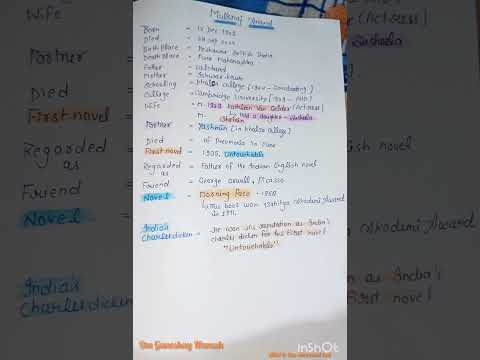 Mulkraj Anand
Born = 12 Dec 1905
Died = 28 sep 2004
Birth Place = Peshawar British India
Death Place = Pune Maharashtra
Father = Lalchand
Mother = Ishwar Kaur
Schooling = Khalsa college (1924 - Graduating)
College = Cambridge University (1929 - PHD)
Wife = M - 1939 Kathleen Van Gelder (Actress)
↳ had a daughter - Sushela
M - Shirin
Partner = Yashmin (in khalsa college)
Died = of Pneumonia in Pune
First novel = 1935, Untouchable
Regarded as = Father of the Indian English novel
Friend = George orwell, Picasso
Novel = Morning Face - 1968
↳ This book won Sahitya Akademi Award
in 1971.
India's
Charles dicken = He won his reputation as India's
charles dicken for his First novel
"Untouchable"
Wife
Partner
Died
First novel
Regarded
as
Friend
Novel
India's
Charles dicken
(Actress)
Sushela
Akademi Award
on as India's
First novel
Om Ganeshay Namah
InShOt